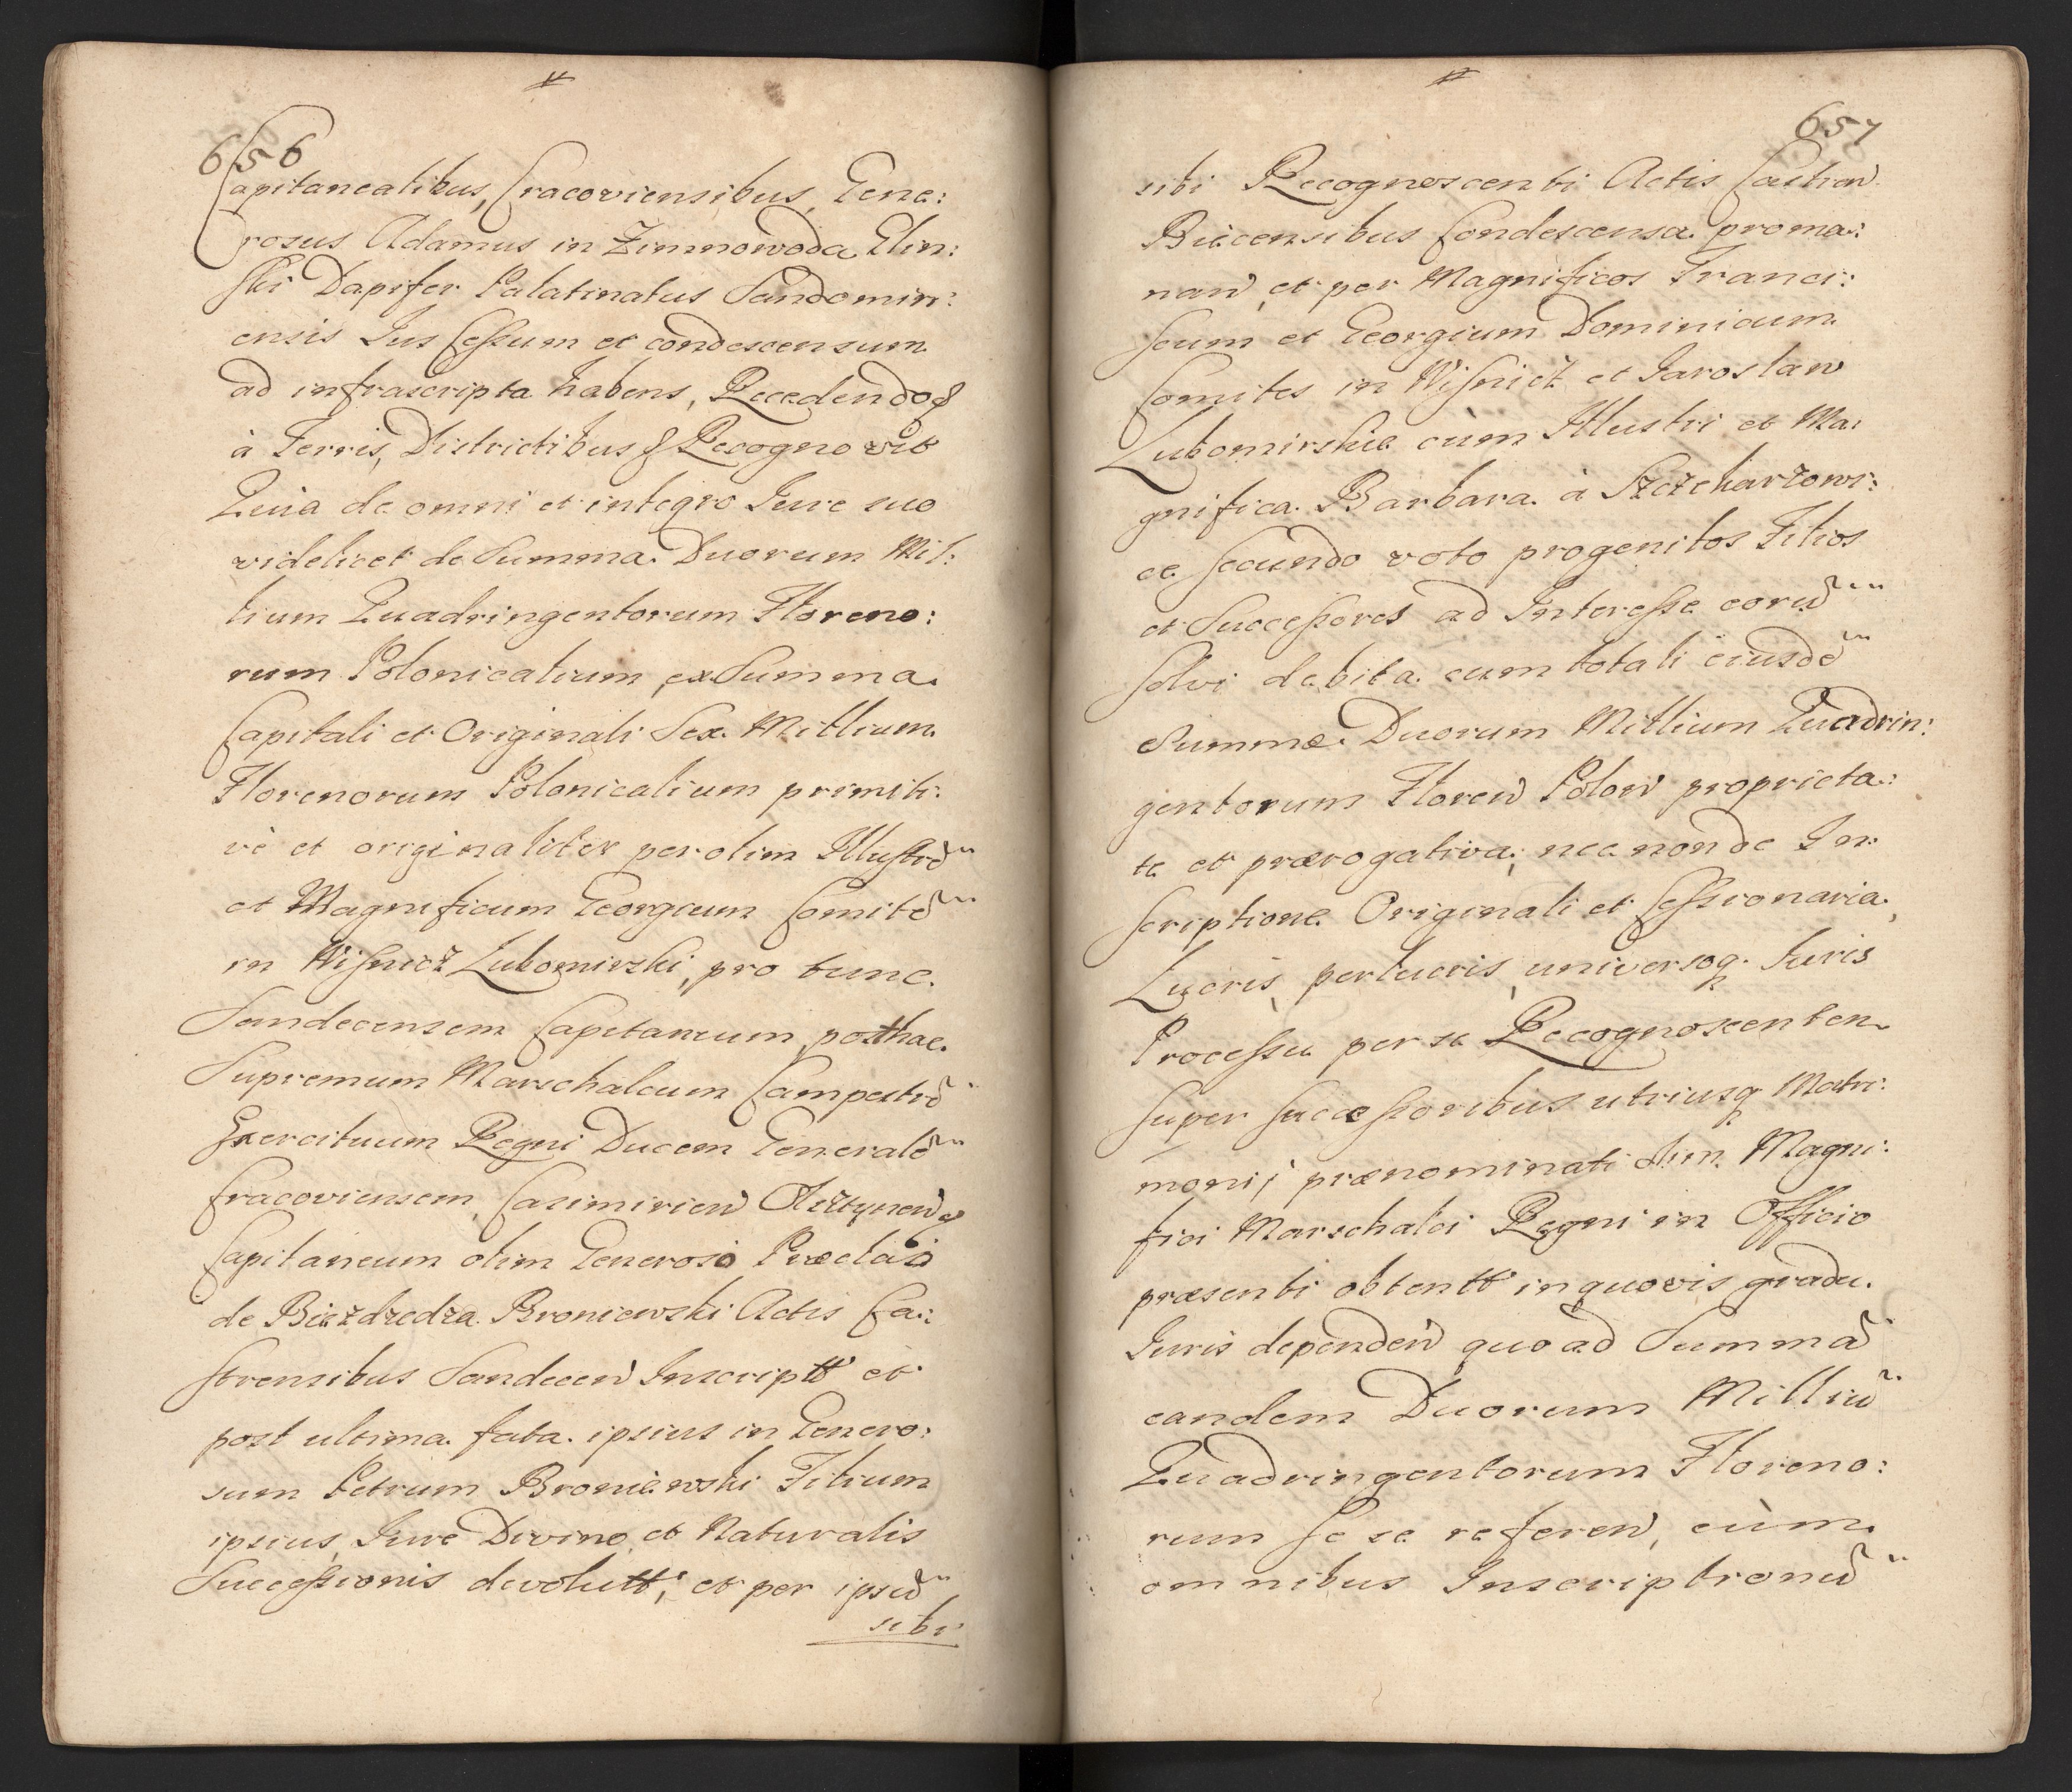 656
Capitanealibus, Cracoviensibus, Gene:
rosus Adamus in Zimnowoda Elin:
ski Dapifer Palatinatus Sandomiri:
ensis Jus Cessum et condescensum
ad infrascripta habens, Recedendo &
à Terris, Districtibus & Recognovit
Quia de omni et integro Jure suo
videlicet de Summa Duorum Mil:
lium Quadringentorum Floreno:
rum Polonicalium, ex Summa
Capitali et Originali Sex Millium
Florenorum Polonicalium primiti:
vè et originaliter per olim Illustrẽ
et Magnificum Georgium Comitẽ
in Wisnicz Lubomirski, pro tunc
Sandecensem Capitaneum, posthac
Supremum Marschalcum Campestrẽ
Exercituum Regni Ducem Generalẽ
Cracoviensem, Casimirien
Capitaneum olim Generoso
de Biezdzedza Broniewski Actis Ca:
strensibus Sandecen Inscriptt et
post ultima fata ipsius in Genero:
sum Petrum Broniewski Filium
ipsius, Jure Divino et Naturalis
Successionis devolutt; et per ipsũ
sibi
657
sibi Recognoscenti Actis Castren
Biecensibus Condescensa proma:
nan, et per Magnificos Franci:
scum et Georgium Dominicum
Comites in Wisnicz et Jaroslaw
Lubomirskie cùm Illustri et Ma:
gnifica Barbara à
ce secundo voto progenitos Filios
et Successores ad Interesse eorũ
solvi debita cum totali eiusdẽ
Summæ Duorum Millium Quadrin:
gentorum Floren Polon proprieta:
te et prærogativa; nec non de In:
scriptione Originali et Cessionaria,
Lucris, perlucris, universoq Juris
Processu per se Recognoscentem
super Successoribus utriusq Matri:
monij prænominati olim Magni:
fici Marschalci Regni in Officio
præsenti obtentt in quovis gradu
Juris dependen quo ad Summã
eandem Duorum Milliũ
Quadringentorum Floreno:
rum se se referen, cùm
omnibus Inscriptionũ